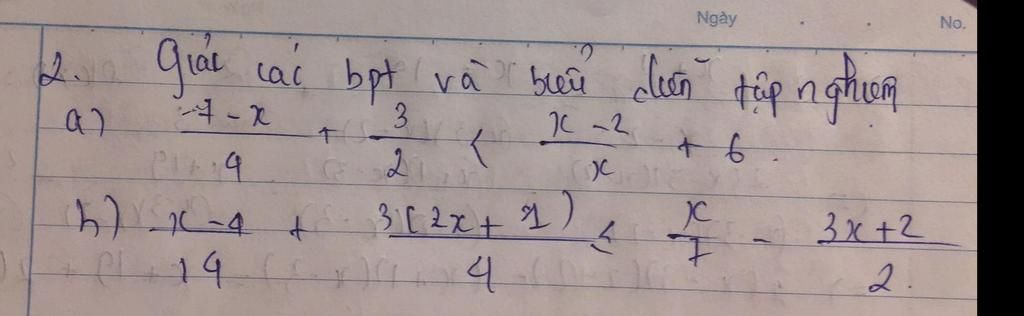 Ngày . . No.
2. Giải các bpt và biểu diễn tập nghiệm
a) \frac{-7-x}{4} + \frac{3}{2} < \frac{x-2}{x} + 6.
b) \frac{x-4}{14} + \frac{3(2x+1)}{4} ≤ \frac{x}{7} - \frac{3x+2}{2}.